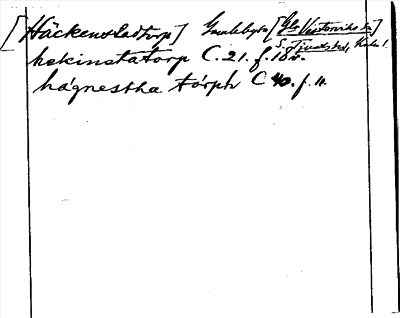 [Häckenstadtorp] Gamleby [Gla Västerviks
S. Tjust hd, Kalm l.
hekinstatorp C. 21. f. 16 v.
hágnestha tórph C 40. f. 11.